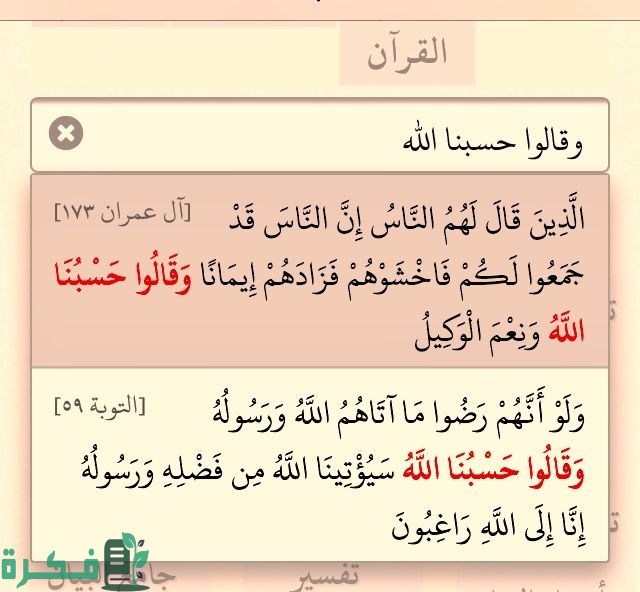 القرآن
وقالوا حسبنا الله
الَّذِينَ قَالَ لَهُمُ النَّاسُ إِنَّ النَّاسَ قَدْ [آل عمران ١٧٣]
جَمَعُوا لَكُمْ فَاخْشَوْهُمْ فَزَادَهُمْ إِيمَانًا وَقَالُوا حَسْبُنَا
اللَّهُ وَنِعْمَ الْوَكِيلُ
وَلَوْ أَنَّهُمْ رَضُوا مَا آتَاهُمُ اللَّهُ وَرَسُولُهُ [التوبة ٥٩]
وَقَالُوا حَسْبُنَا اللَّهُ سَيُؤْتِينَا اللَّهُ مِن فَضْلِهِ وَرَسُولُهُ
إِنَّا إِلَى اللَّهِ رَاغِبُونَ
تفسير جامع البيان
فكرة